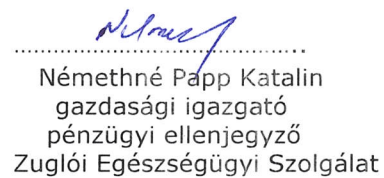 Némethné Papp Katalin
gazdasági igazgató
pénzügyi ellenjegyző
Zuglói Egészségügyi Szolgálat